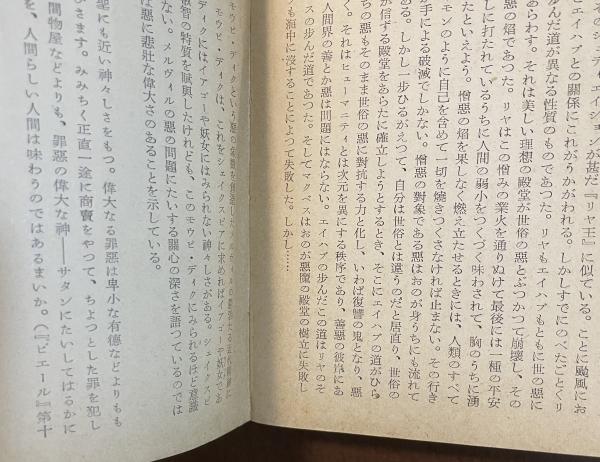 エイションが甚だ『リヤ王』に似ている。ことに颱風にお
とエイハブとの関係にこれがうかがわれる。しかしすでにのべたごとくリ
歩んだ道が異なる性質のものであつた。リヤもエイハブもともに世の悪に
あらわす。それは美しい理想の殿堂が世俗の悪とぶつかつて崩壊し、その
悪の焰であつた。リヤはこの憎みの業火を通りぬけて最後には一種の平安
しに打たれているうちに人間の弱小をつくづく味わされて、胸のうちに湧
といえよう。憎悪の焰を果しなく燃え立たせるときには、人類のすべて
モンのように自己を含めて一切を焼きつくさなければ止まない。その行き
手による破滅でしかない。憎悪の對象である悪はおのが身うちにも流れて
る。しかし一歩ひるがえつて、自分は世俗とは違うのだと居直り、世俗の
が信ずる殿堂をあらたに確立しようとするとき、そこにエイハブの道がひら
ちの悪もそのまま世俗の悪に對抗する力と化し、いわば復讐の鬼となり、悪
く。それはヒューマニティとは次元を異にする秩序であり、善悪の彼岸にあ
人間界の善とか悪は問題にはならない。エイハブの歩んだこの道はリヤのそ
スの歩んだ道であつた。そしてマクベスはおのが悪魔の殿堂の樹立に失敗し
も海中に沒することによつて失敗した。しかし……
モウビ・ディクという悪の
モウビ・ディクは、これをシェイクスピアに求めればイアゴーや妖女であ
ディクにはイアゴーや妖女にはみられない神々しさがある。シェイクスピ
叡智の特質を賦與したけれども、このモウビ・ディクにみられるほど意識
ない。メルヴィルの悪の問題にたいする關心の深さを語つているのでは
は悪に悲壯な偉大さのあることを示している。
聖にも近い神々しさをもつ。偉大なる罪惡は卑小な有德などよりもも
ひきます。みみちく正直一途に商賣をやつて、ちよつとした罪を犯し
間物屋などよりも、罪惡の偉大な神――サタンにたいしてはるかに
を、人間らしい人間は味わうのではあるまいか。（『ピエール』第十